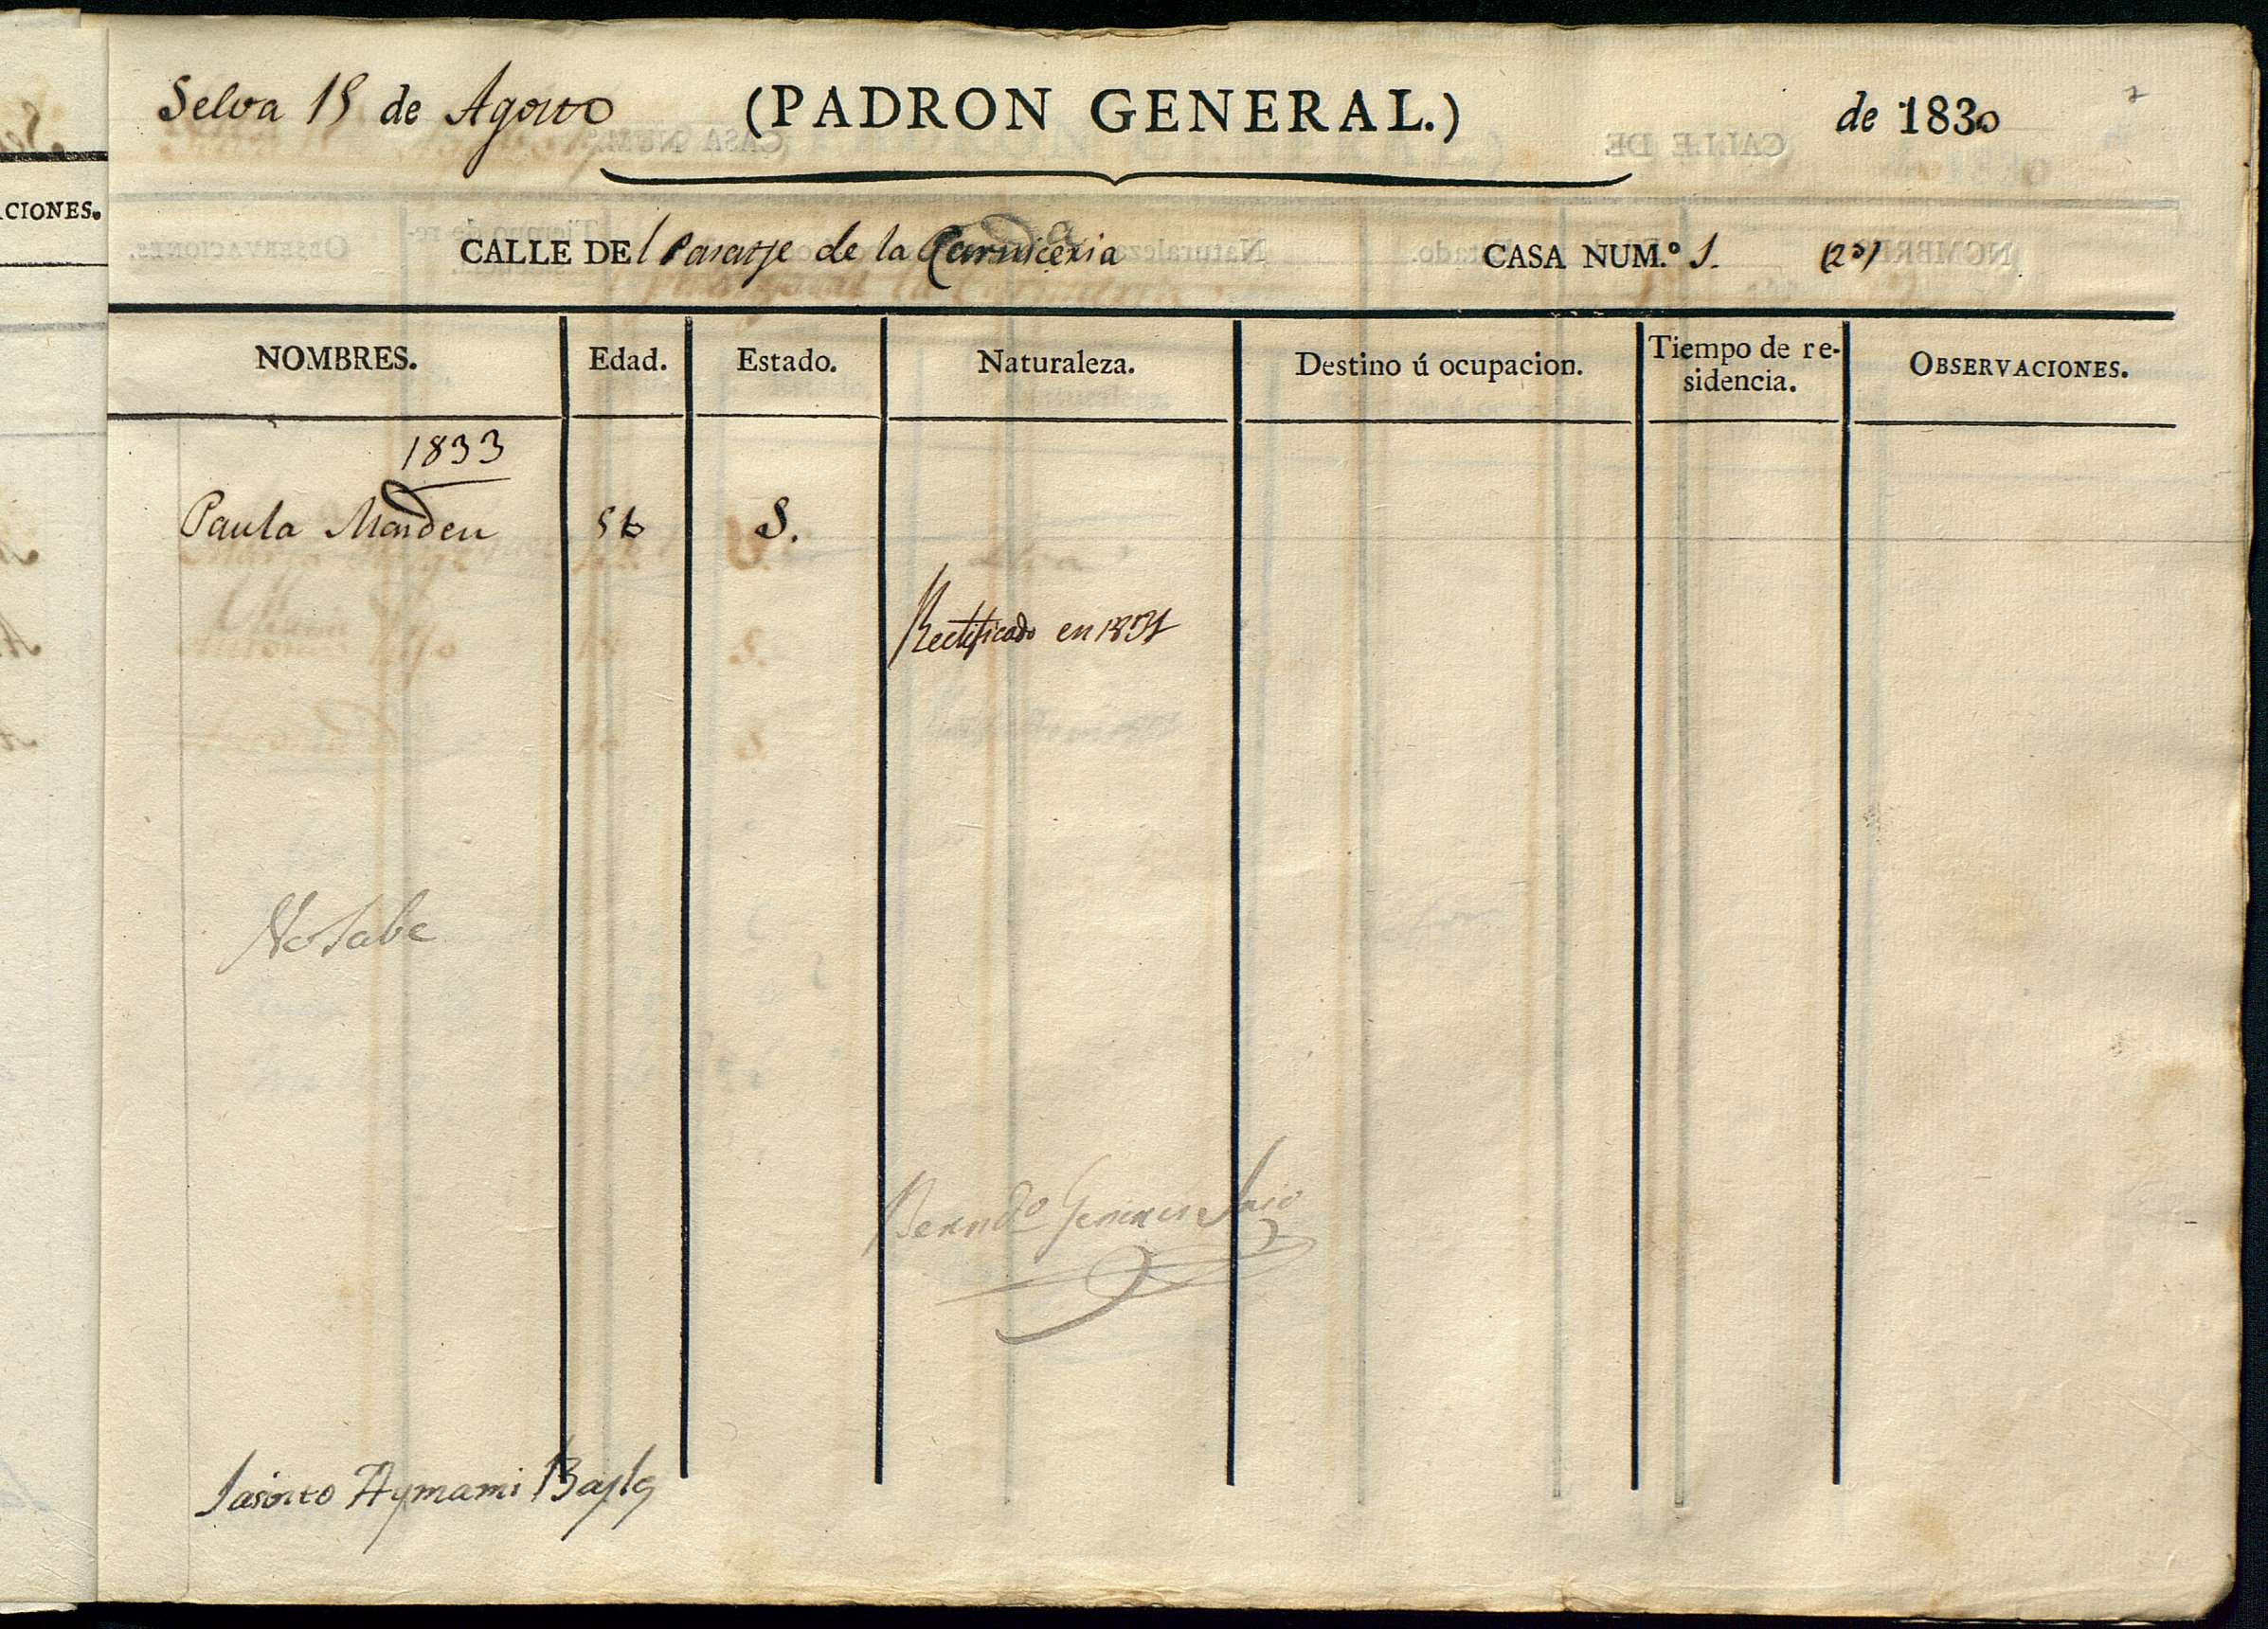 Selva 15 de Agosto (PADRON GENERAL.) de 1830
ACIONES.
CALLE DEl Paratje de la Carniceria CASA NUM.º 1.
NOMBRES. Edad. Estado. Naturaleza. Destino ú ocupacion. Tiempo de re-sidencia. OBSERVACIONES.
1833
Paula Mardeu S.
Rectificado en 1831
No Sabe
Jasinto Aymami Bayle